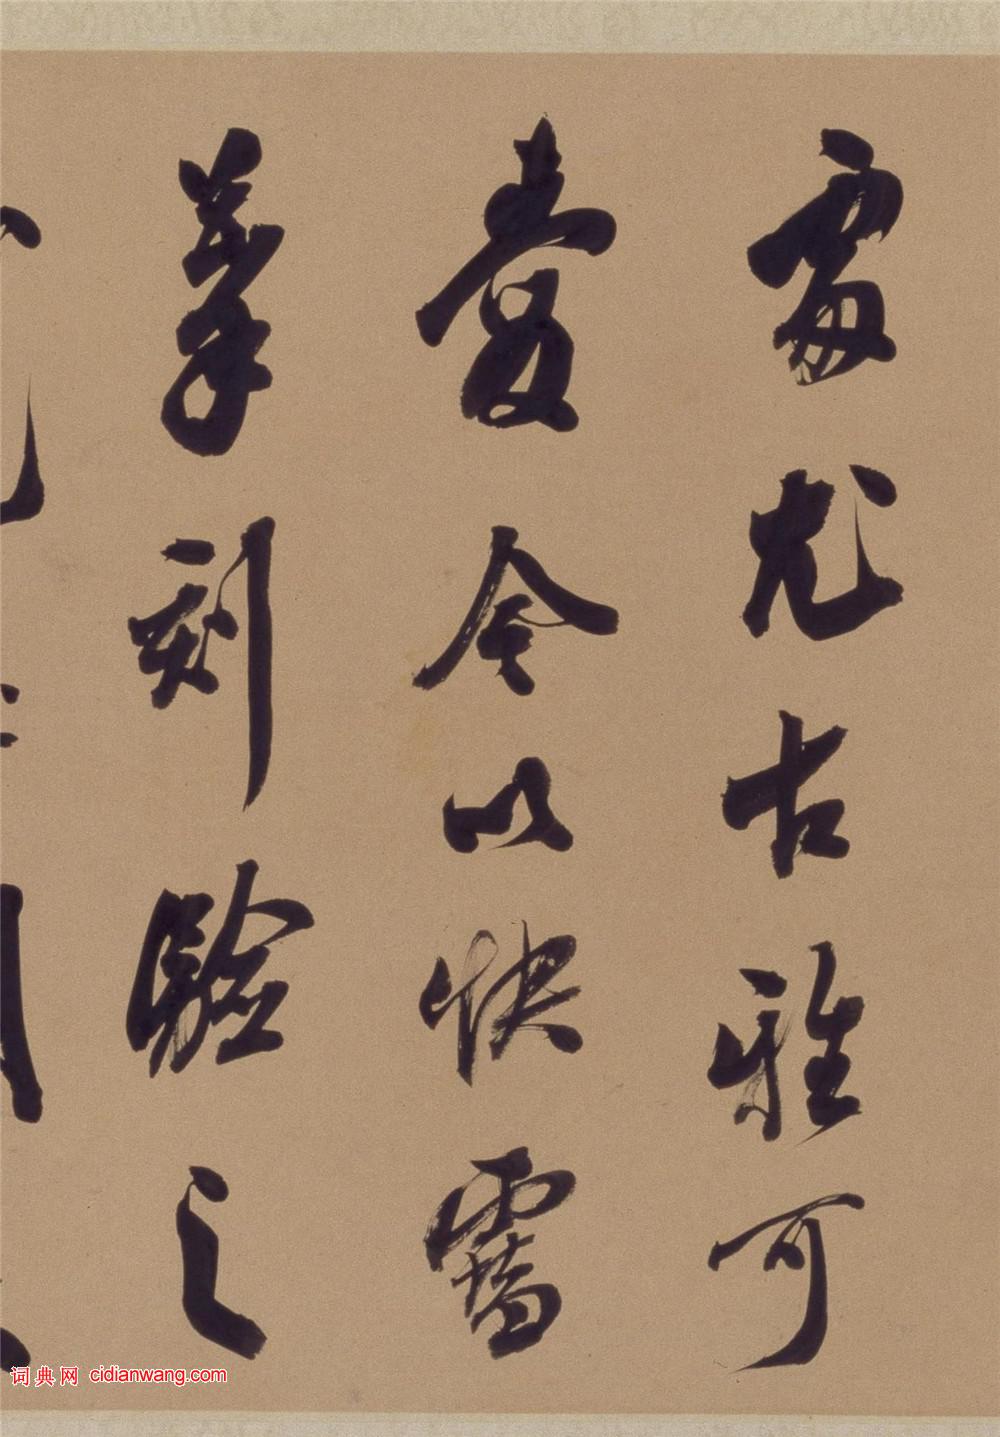 處尤古雅可
愛今以快䨮
摹刻驗之
词典网 cidianwang.com